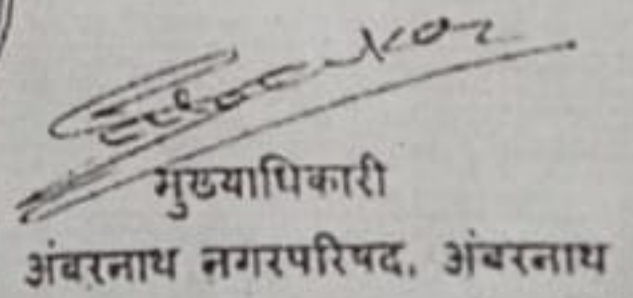 मुख्याधिकारी
अंबरनाथ नगरपरिषद, अंबरनाथ